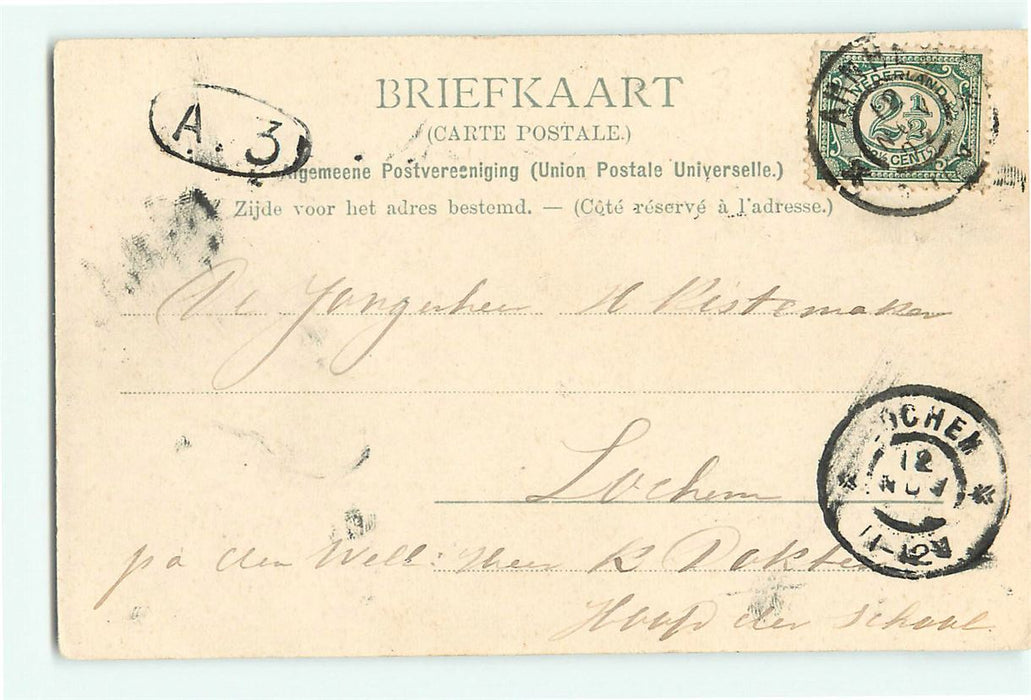 BRIEFKAART
(CARTE POSTALE.)
Algemeene Postvereeniging (Union Postale Universelle.)
Zijde voor het adres bestemd. — (Côté réservé à l'adresse.)
A. 3
NEDERLAND
2½
CENT
De Jongenheer H Kistemaker
Lochem
pa den Well: Heer R Dokter
Hoofd der School
LOCHEM
12
NOV
11-12